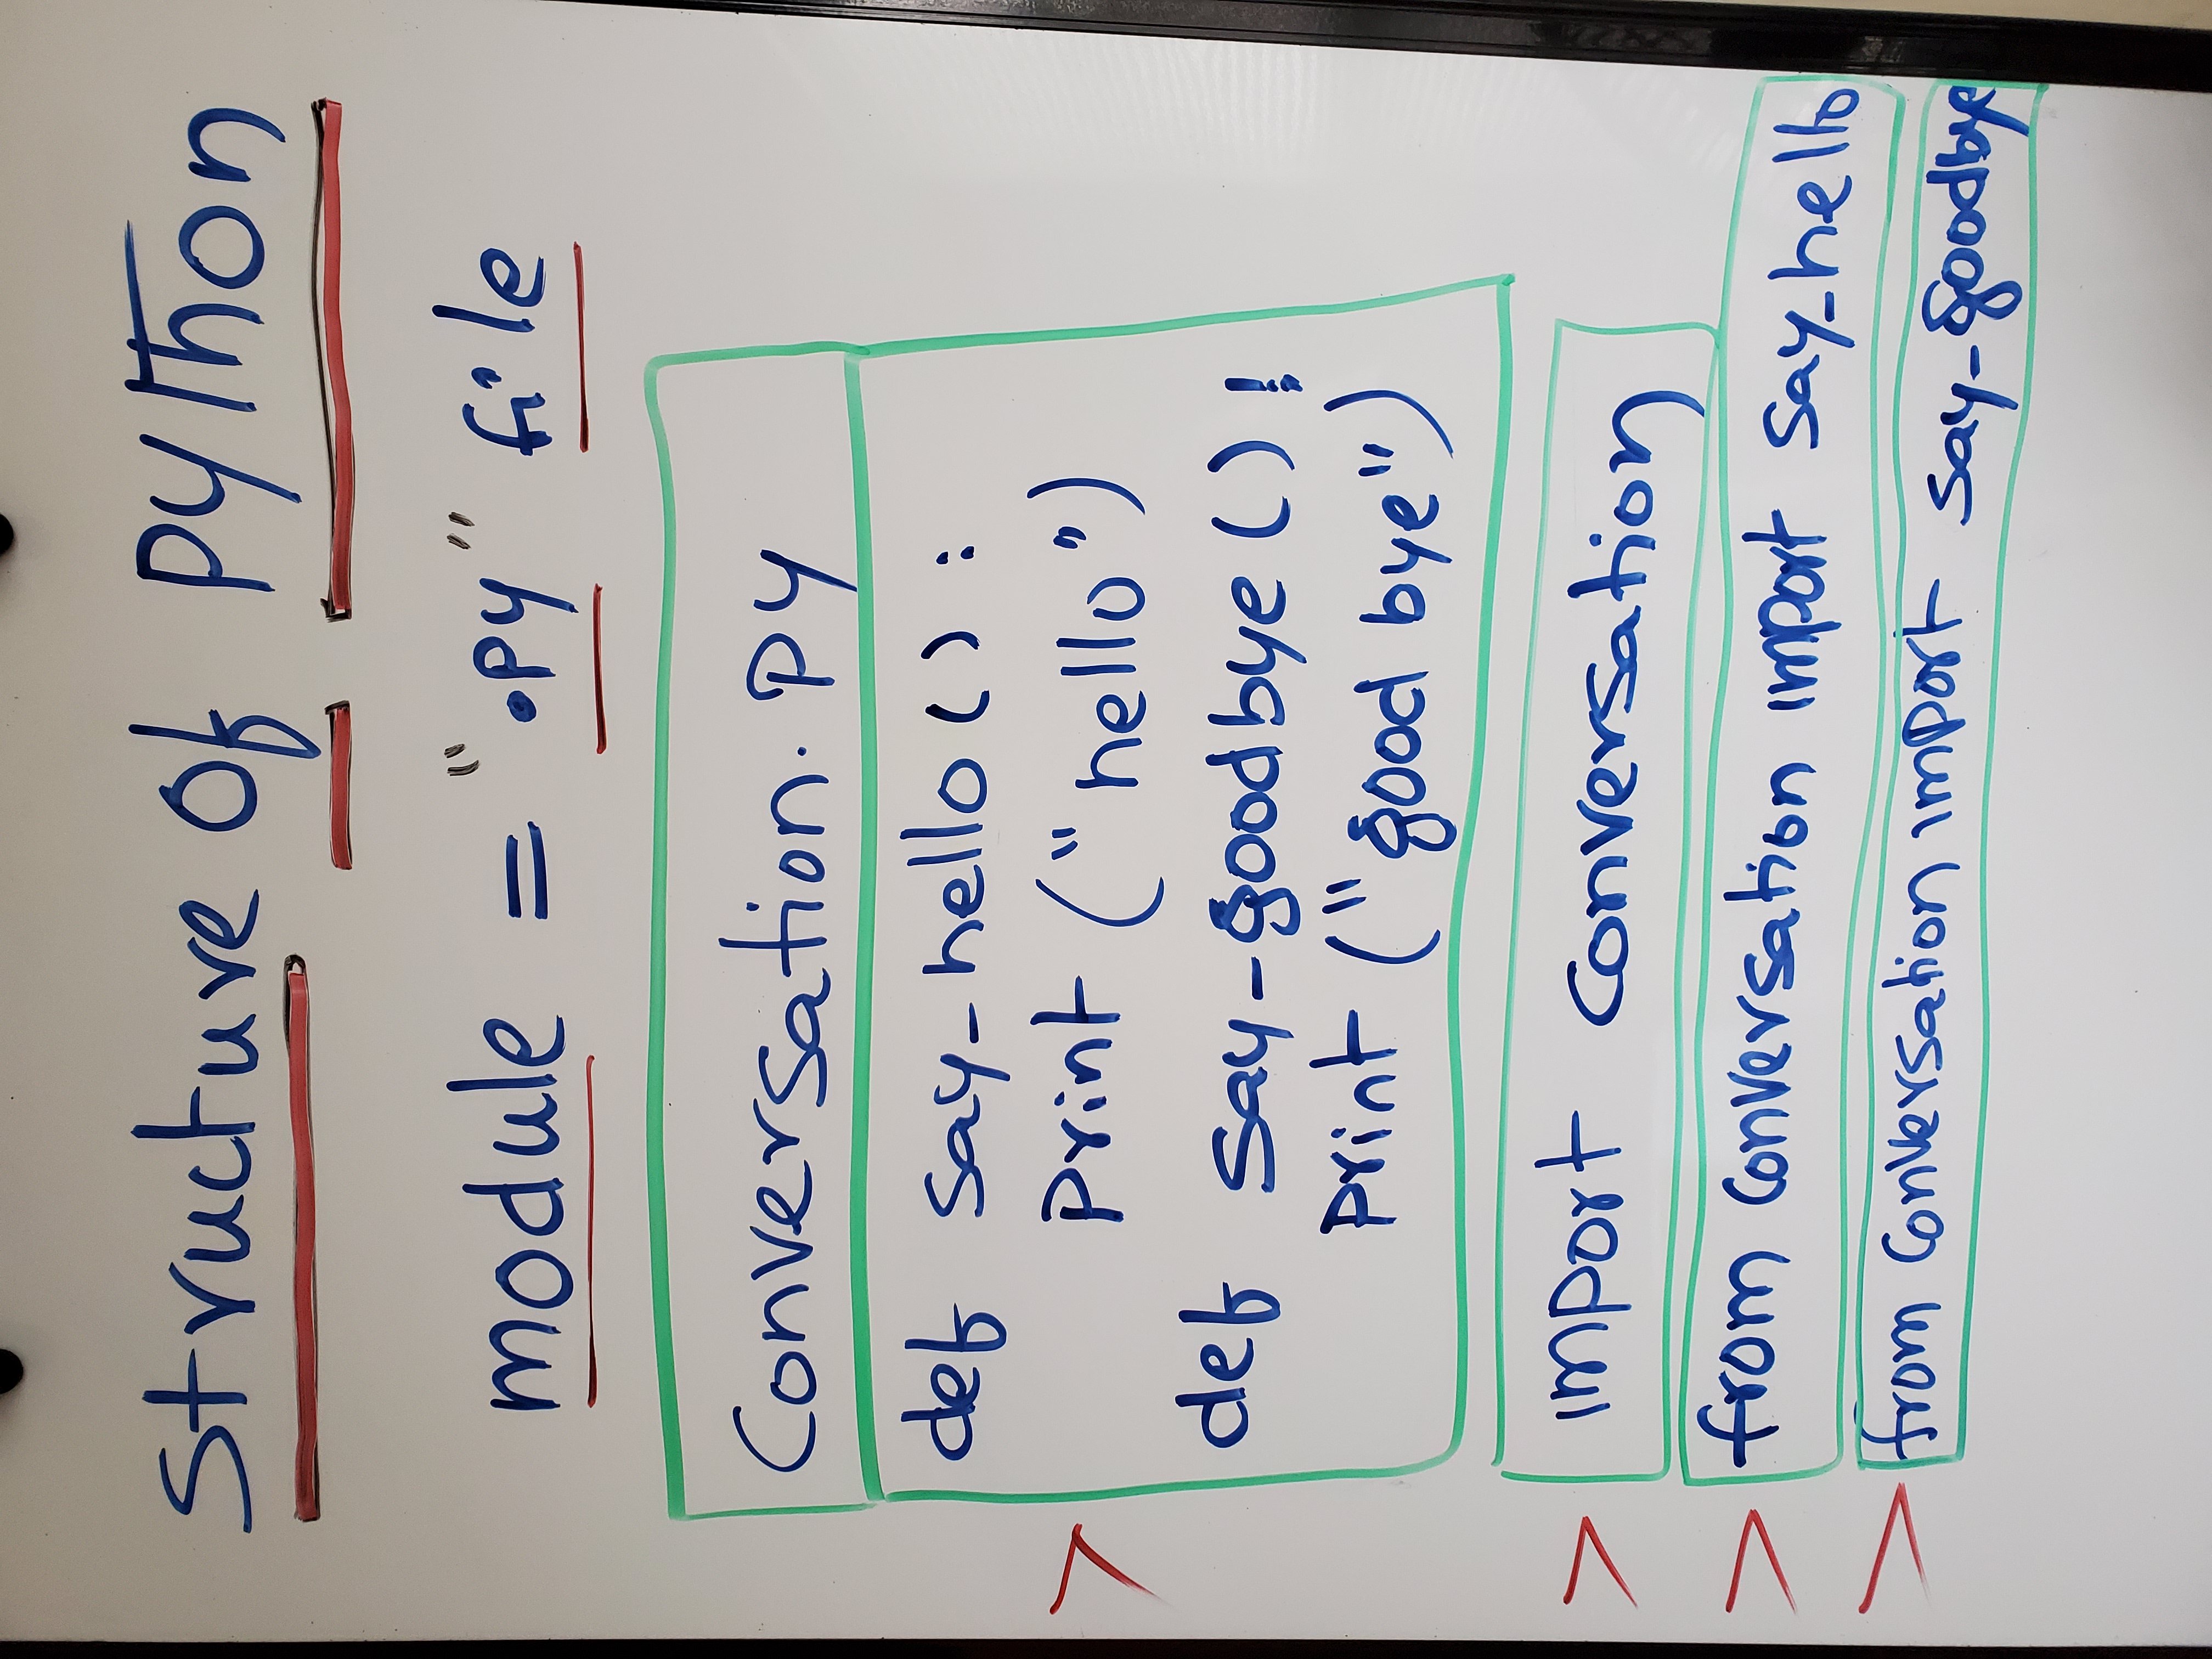 Structure of Python
module = ".py" file
Conversation.py
def say_hello():
print ("hello")
def say_goodbye()!
print ("good bye")
import conversation
from conversation import say_hello
from conversation import say_goodbye